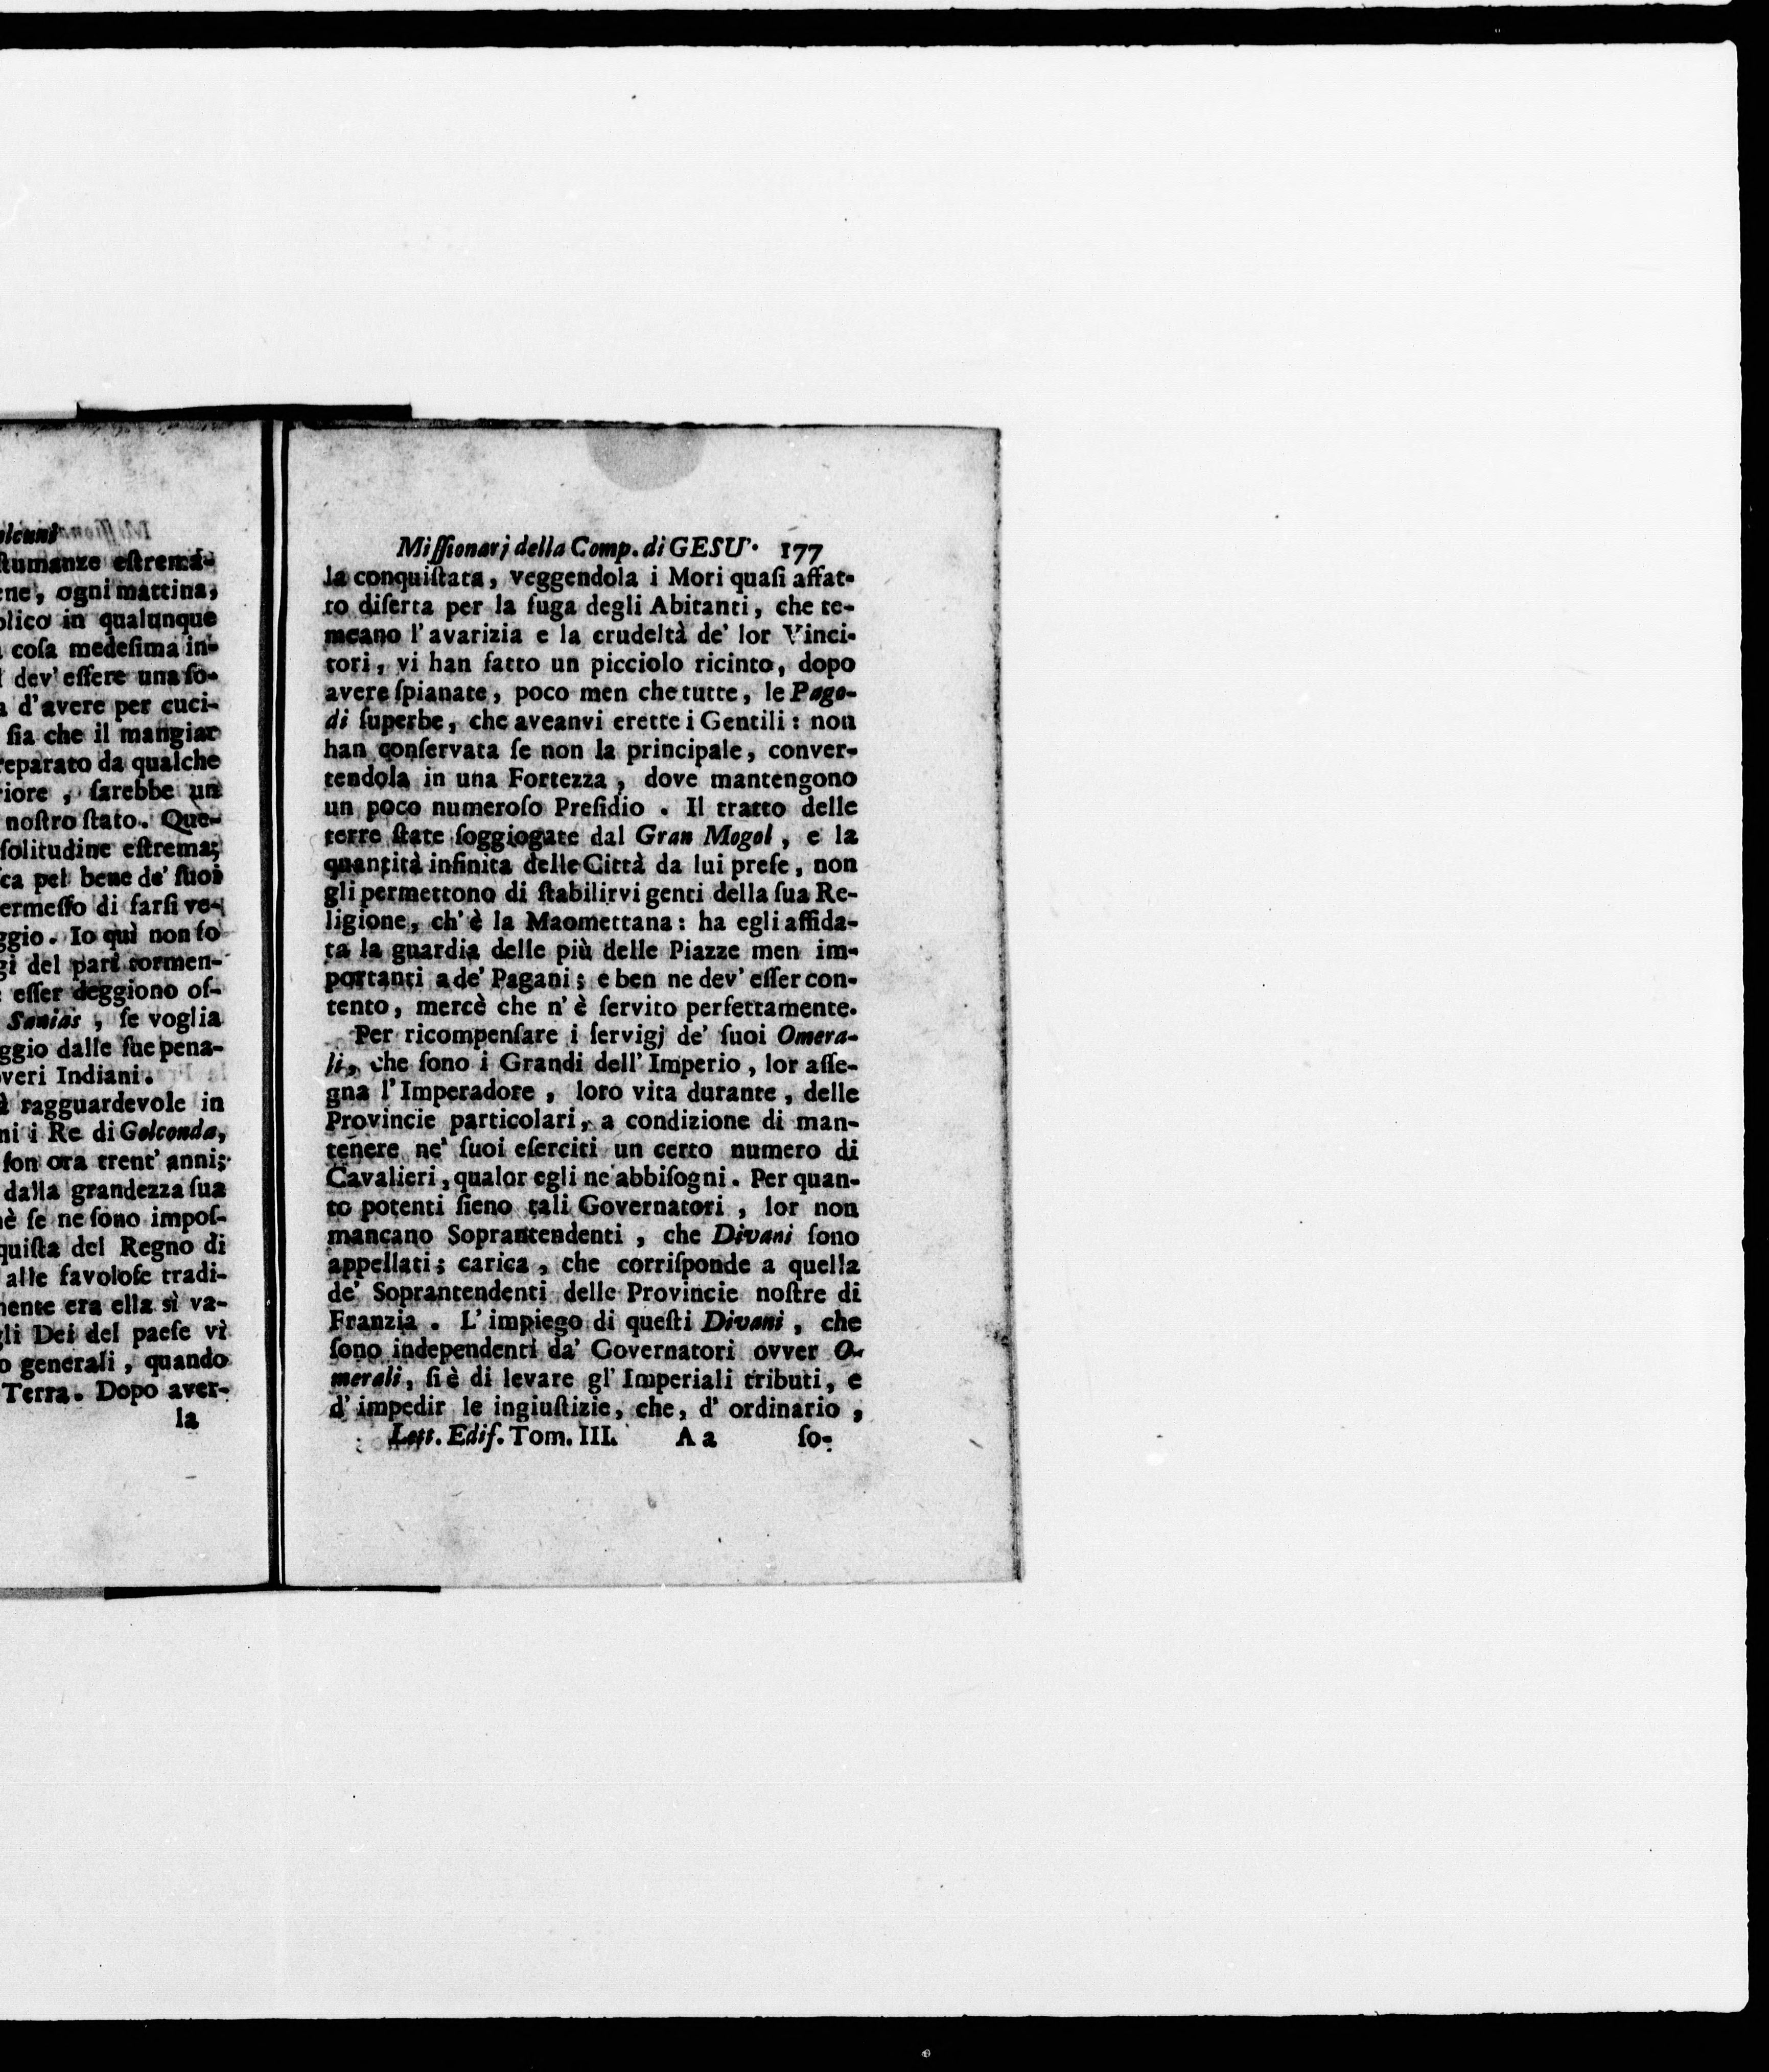 alcuni
stumanze estrema-
ene, ogni mattina,
blico in qualunque
cosa medesima in-
dev' essere una so-
d'avere per cuci-
sia che il mangiar
reparato da qualche
riore, sarebbe un
nostro stato. Que-
solitudine estrema;
ca pel bene de' suoi
ermesso di farsi ve-
ggio. Io quì non so
gi del pari tormen-
esser deggiono os-
Sanias, se voglia
ggio dalle sue pena-
overi Indiani.
à ragguardevole in
ni i Re di Golconda,
son ora trent' anni;
dalla grandezza sua
hè se ne sono impos-
quista del Regno di
alle favolose tradi-
mente era ella sì va-
gli Dei del paese vi
o generali, quando
Terra. Dopo aver-
la
Miſſionarj della Comp. di GESU'. 177
la conquiſtata, veggendola i Mori quaſi affat-
to diſerta per la fuga degli Abitanti, che te-
meano l'avarizia e la crudeltà de' lor Vinci-
tori, vi han fatto un picciolo ricinto, dopo
avere ſpianate, poco men che tutte, le Pago-
di ſuperbe, che aveanvi erette i Gentili: non
han conſervata ſe non la principale, conver-
tendola in una Fortezza, dove mantengono
un poco numeroſo Preſidio. Il tratto delle
terre ſtate ſoggiogate dal Gran Mogol, e la
quantità infinita delle Città da lui preſe, non
gli permettono di ſtabilirvi genti della ſua Re-
ligione, ch'è la Maomettana: ha egli affida-
ta la guardia delle più delle Piazze men im-
portanti a de' Pagani; e ben ne dev' eſſer con-
tento, mercè che n'è ſervito perfettamente.
Per ricompenſare i ſervigj de' ſuoi Omera-
li, che ſono i Grandi dell' Imperio, lor aſſe-
gna l'Imperadore, loro vita durante, delle
Provincie particolari, a condizione di man-
tenere ne' ſuoi eſerciti un certo numero di
Cavalieri, qualor egli ne abbiſogni. Per quan-
to potenti ſieno tali Governatori, lor non
mancano Soprantendenti, che Divani ſono
appellati; carica, che corriſponde a quella
de' Soprantendenti delle Provincie noſtre di
Franzia. L'impiego di queſti Divani, che
ſono independenti da' Governatori ovver O-
merali, ſi è di levare gl' Imperiali tributi, e
d' impedir le ingiuſtizie, che, d' ordinario,
Lett. Edif. Tom. III. A a ſo-